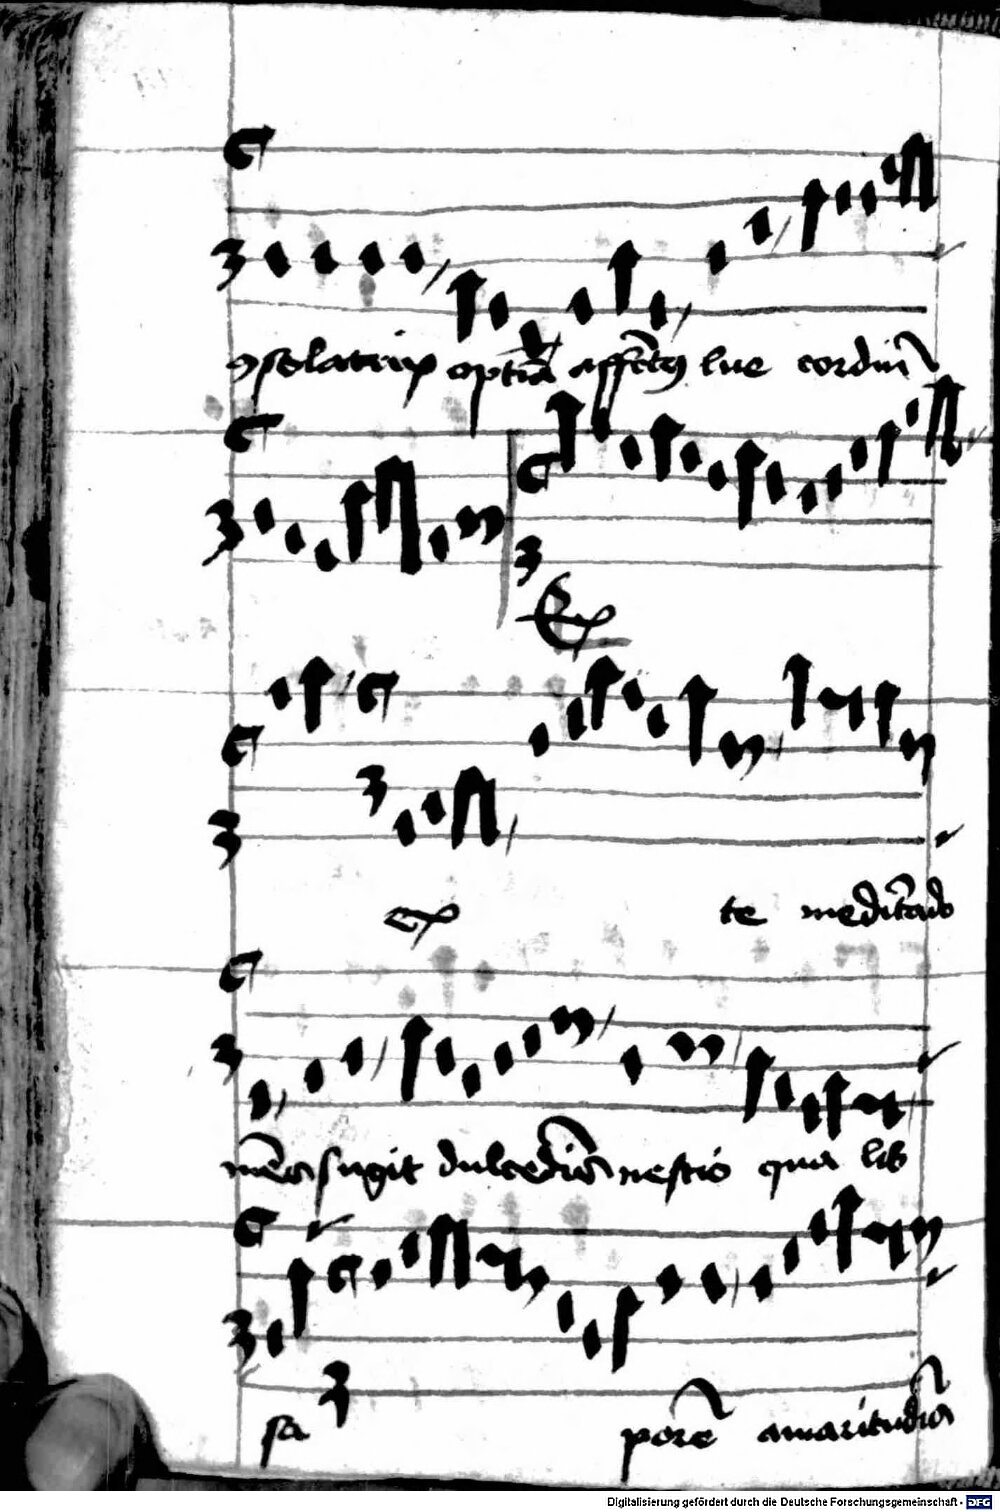 ꝯsolatrix optīa affctꝰ lue cordiū
Ex
ex te meditādo
mēa sugit dulcedīa nescio qua lib
sa porē amaritudīa
Digitalisierung gefördert durch die Deutsche Forschungsgemeinschaft - DFG